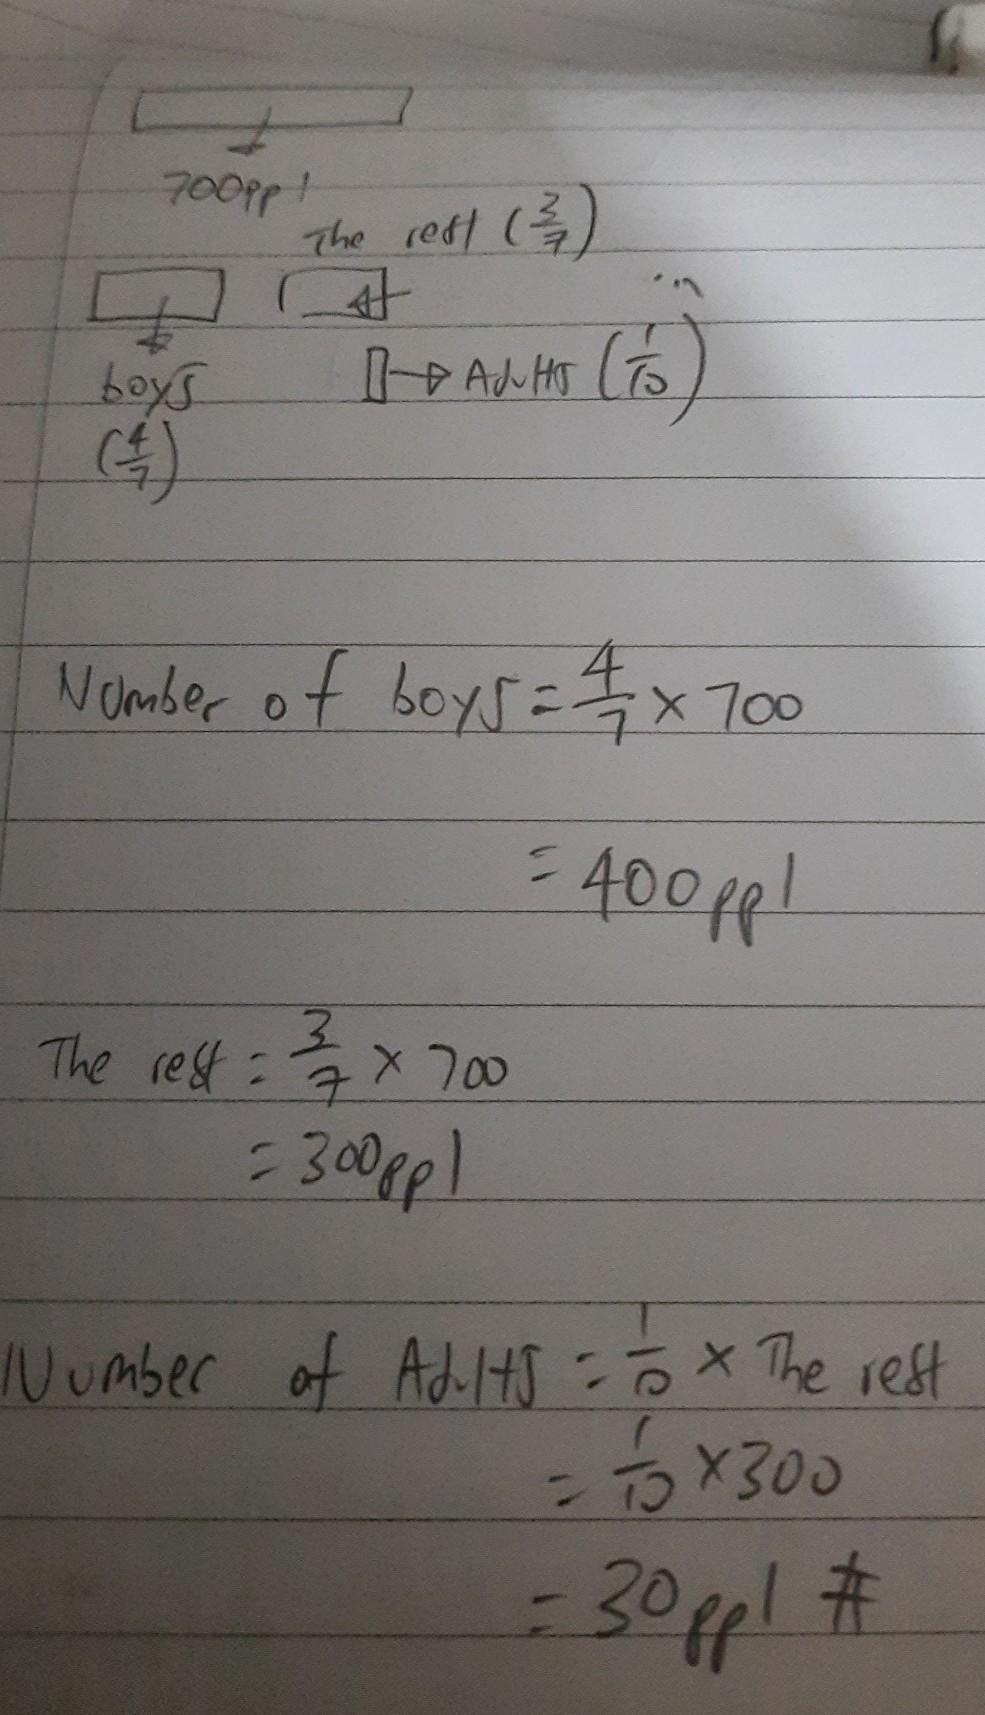 700ppl
The rest (3/7)
boys
(4/7)
→ Adults (1/10)
Number of boys = 4/7 × 700
= 400ppl
The rest = 3/7 × 700
= 300ppl
Number of Adults = 1/10 × The rest
= 1/10 × 300
= 30ppl #